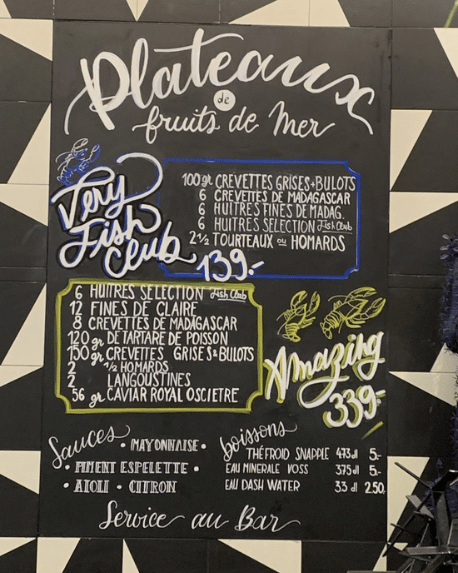 Plateaux
de
fruits de Mer
Very
Fish
Club
100 gr CREVETTES GRISES + BULOTS
6 CREVETTES DE MADAGASCAR
6 HUITRES FINES DE MADAG.
6 HUITRES SELECTION Fish Club
2 1/2 TOURTEAUX ou HOMARDS
139.-
6 HUITRES SELECTION Fish Club
12 FINES DE CLAIRE
8 CREVETTES DE MADAGASCAR
120 gr DE TARTARE DE POISSON
150 gr CREVETTES GRISES & BULOTS
2 1/2 HOMARDS
2 LANGOUSTINES
56 gr CAVIAR ROYAL OSCIETRE
Amazing
339.-
Sauces
• MAYONNAISE •
• PIMENT ESPELETTE •
• AIOLI • CITRON
boissons
THÉ FROID SNAPPLE 473 dl 5.-
EAU MINERALE VOSS 375 dl 5.-
EAU DASH WATER 33 dl 2.50
Service au Bar